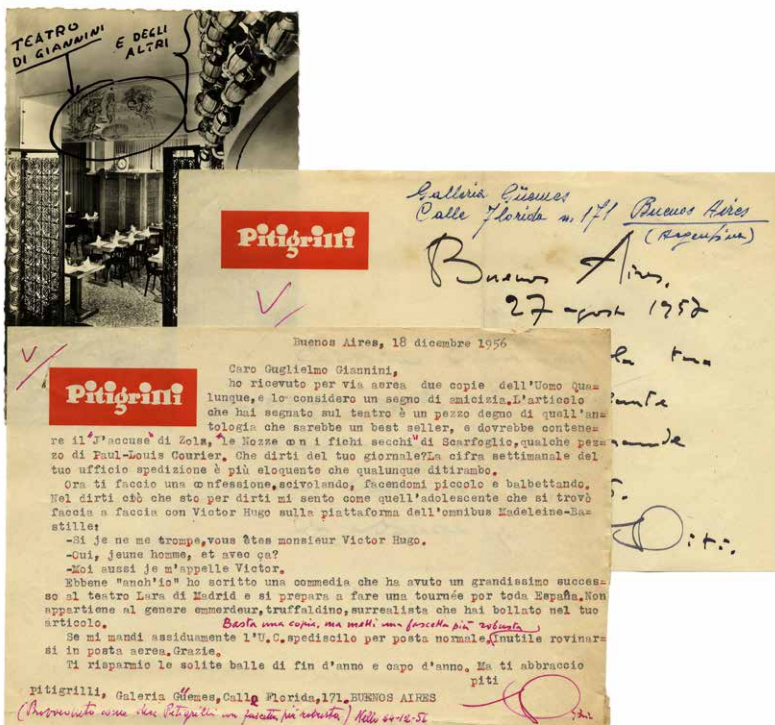 TEATRO
DI GIANNINI
E DEGLI
ALTRI
Galleria Güemes
Calle Florida n. 171 Buenos Aires
(Argentina)
Pitigrilli
Buenos Aires,
27 agosto 1957
la tua
Piti.
Buenos Aires, 18 dicembre 1956
Pitigrilli
Caro Guglielmo Giannini,
ho ricevuto per via aerea due copie dell'Uomo Qua=
lunque, e lo considero un segno di amicizia. L'articolo
che hai segnato sul teatro è un pezzo degno di quell'an=
tologia che sarebbe un best seller, e dovrebbe contene=
re il "J'accuse" di Zola, "le Nozze con i fichi secchi" di Scarfoglio, qualche pez=
zo di Paul-Louis Courier. Che dirti del tuo giornale? La cifra settimanale del
tuo ufficio spedizione è più eloquente che qualunque ditirambo.
Ora ti faccio una confessione, scivolando, facendomi piccolo e balbettando.
Nel dirti ciò che sto per dirti mi sento come quell'adolescente che si trovò
faccia a faccia con Victor Hugo sulla piattaforma dell'omnibus Madeleine-Ba=
stille:
-Si je ne me trompe, vous êtes monsieur Victor Hugo.
-Oui, jeune homme, et avec ça?
-Moi aussi je m'appelle Victor.
Ebbene "anch'io" ho scritto una commedia che ha avuto un grandissimo succes=
so al teatro Lara di Madrid e si prepara a fare una tournée por toda España. Non
appartiene al genere emmerdeur, truffaldino, surrealista che hai bollato nel tuo
articolo. Basta una copia, ma metti una fascetta più robusta
Se mi mandi assiduamente l'U.Q. spediscilo per posta normale. Inutile rovinar=
si in posta aerea. Grazie.
Ti risparmio le solite balle di fin d'anno e capo d'anno. Ma ti abbraccio
piti
Pitigrilli, Galeria Güemes, Calle Florida, 171. BUENOS AIRES